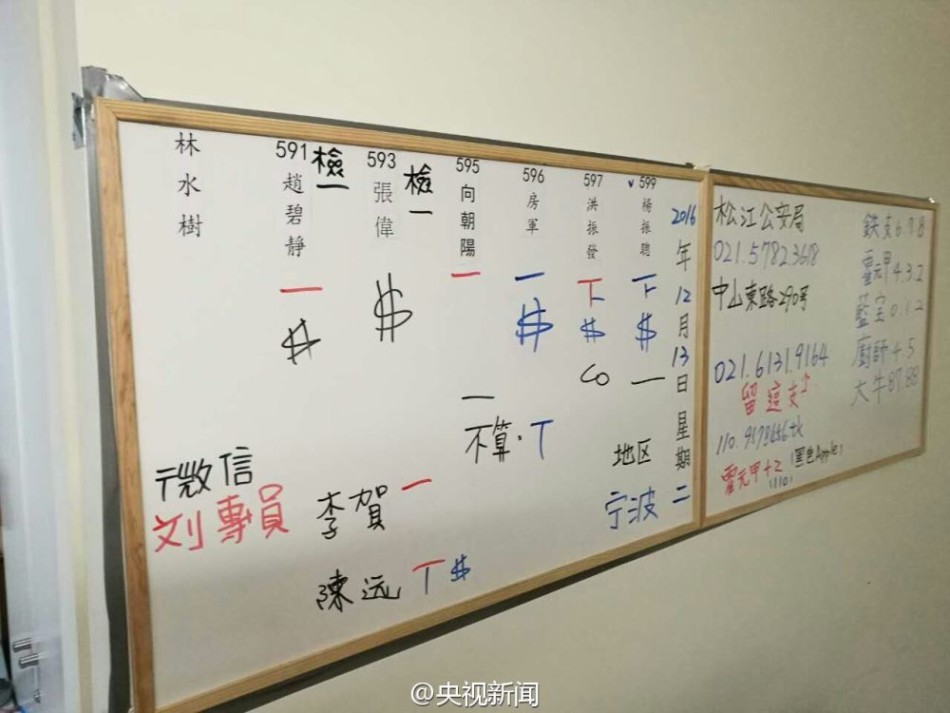 林水樹
591
趙碧靜
檢
593
張偉
檢
595
向朝陽
596
房軍
597
洪振發
599
楊振聰
一
$
$
一
一
$
下
$
下
$
CO 一
一
不算. T
2016年12月13日星期二
地区
宁波
微信
刘專員
李賀 一
陳远 T $
松江公安局
021.57823618
中山東路290号
021.6131.9164
留這支
霍元甲+2 (黑色Apple)
(110)
鉄支6.7.8
霍元甲4.3.2
藍宝0.1.2
廚師4.5
大牛87.88
@央视新闻